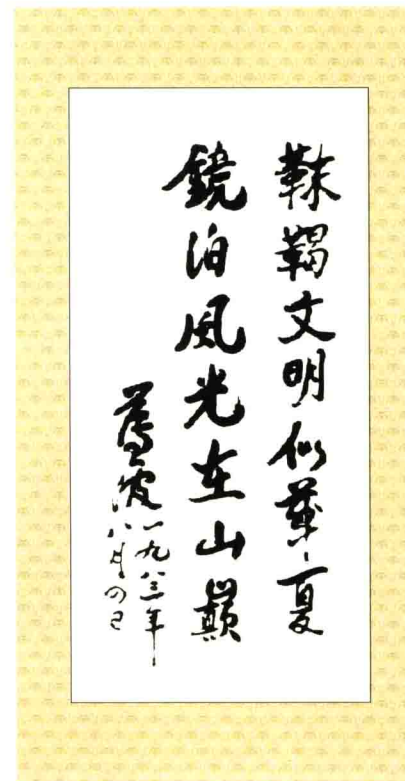 靺鞨文明似華夏
鏡泊風光在山巔
一九八三年
八月四日